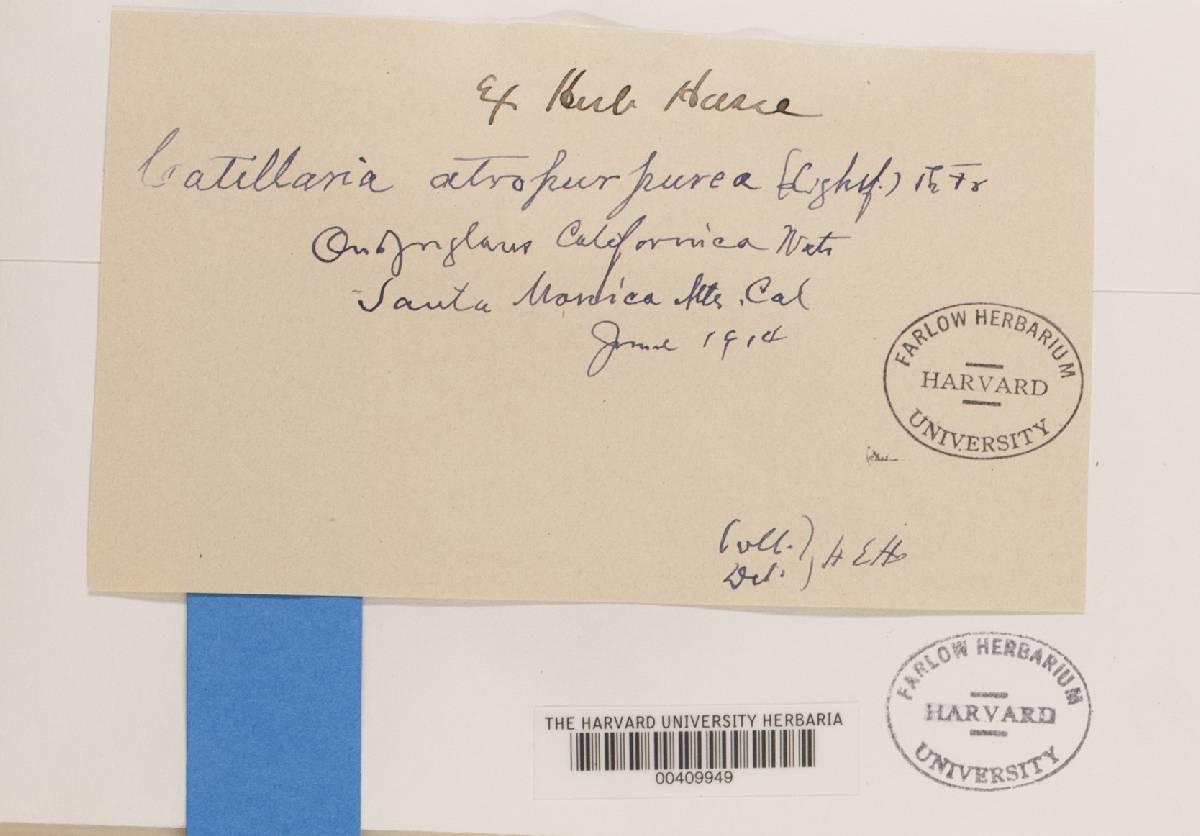 Ex Herb Hasse
Catillaria atropurpurea (Lightf.) Th Fr
On Juglans Californica Wats
Santa Monica Mts. Cal
June 1914
FARLOW HERBARIUM
HARVARD
UNIVERSITY
Coll. }
Det. } H E H
FARLOW HERBARIUM
HARVARD
UNIVERSITY
THE HARVARD UNIVERSITY HERBARIA
00409949